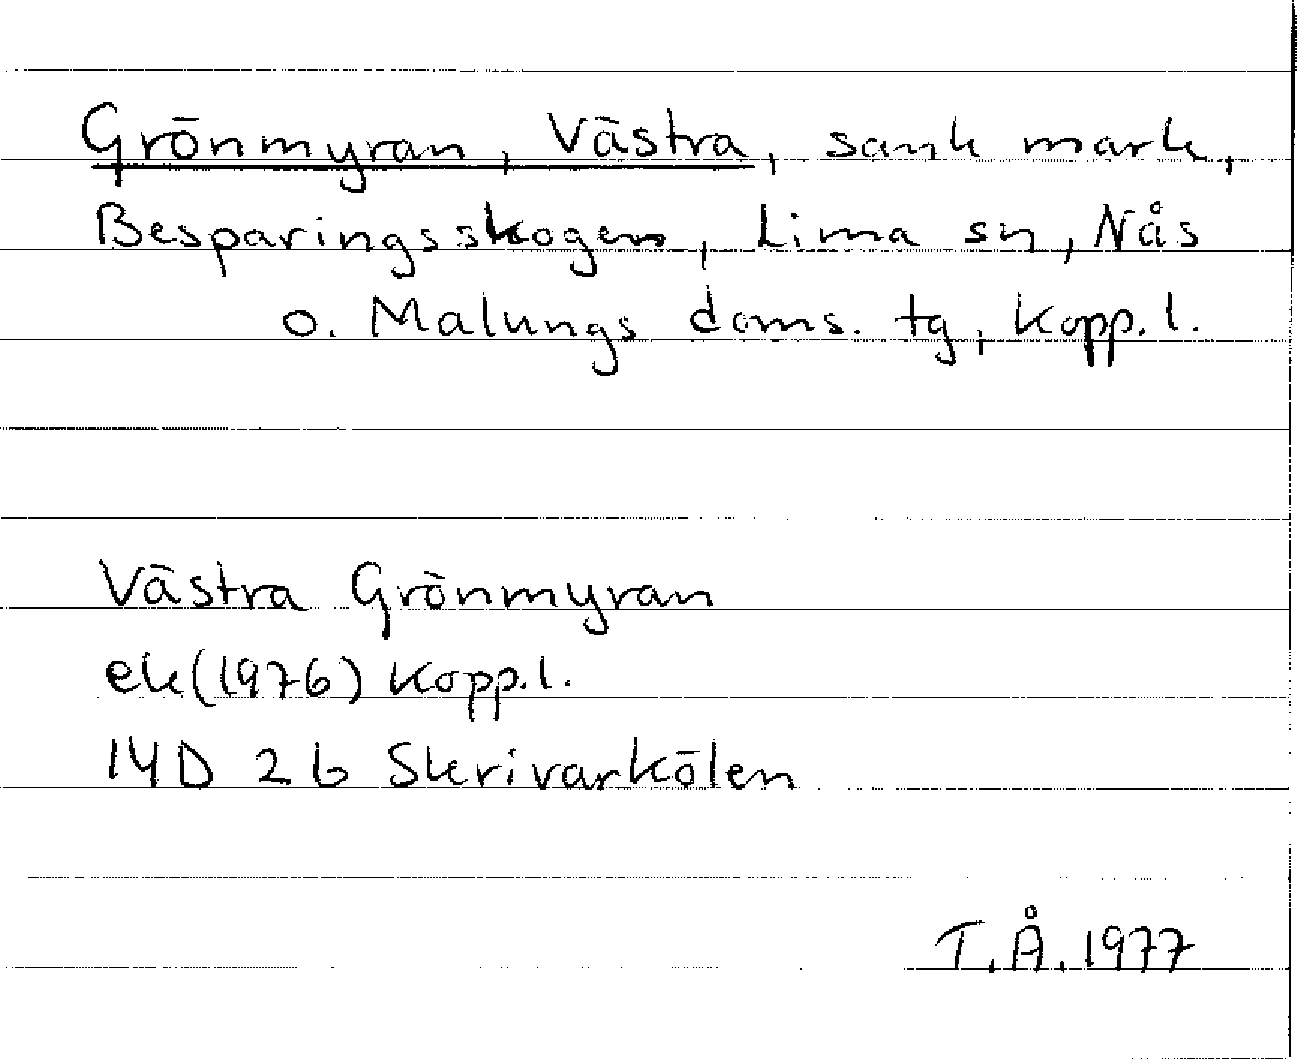 Grönmyran, Västra, sank mark,
Besparingsskogen, Lima sn, Nås
o. Malungs doms. tg, Kopp.l.
Västra Grönmyran
ek(1976) Kopp.l.
14D 2b Skrivarkölen
T.Å.1977